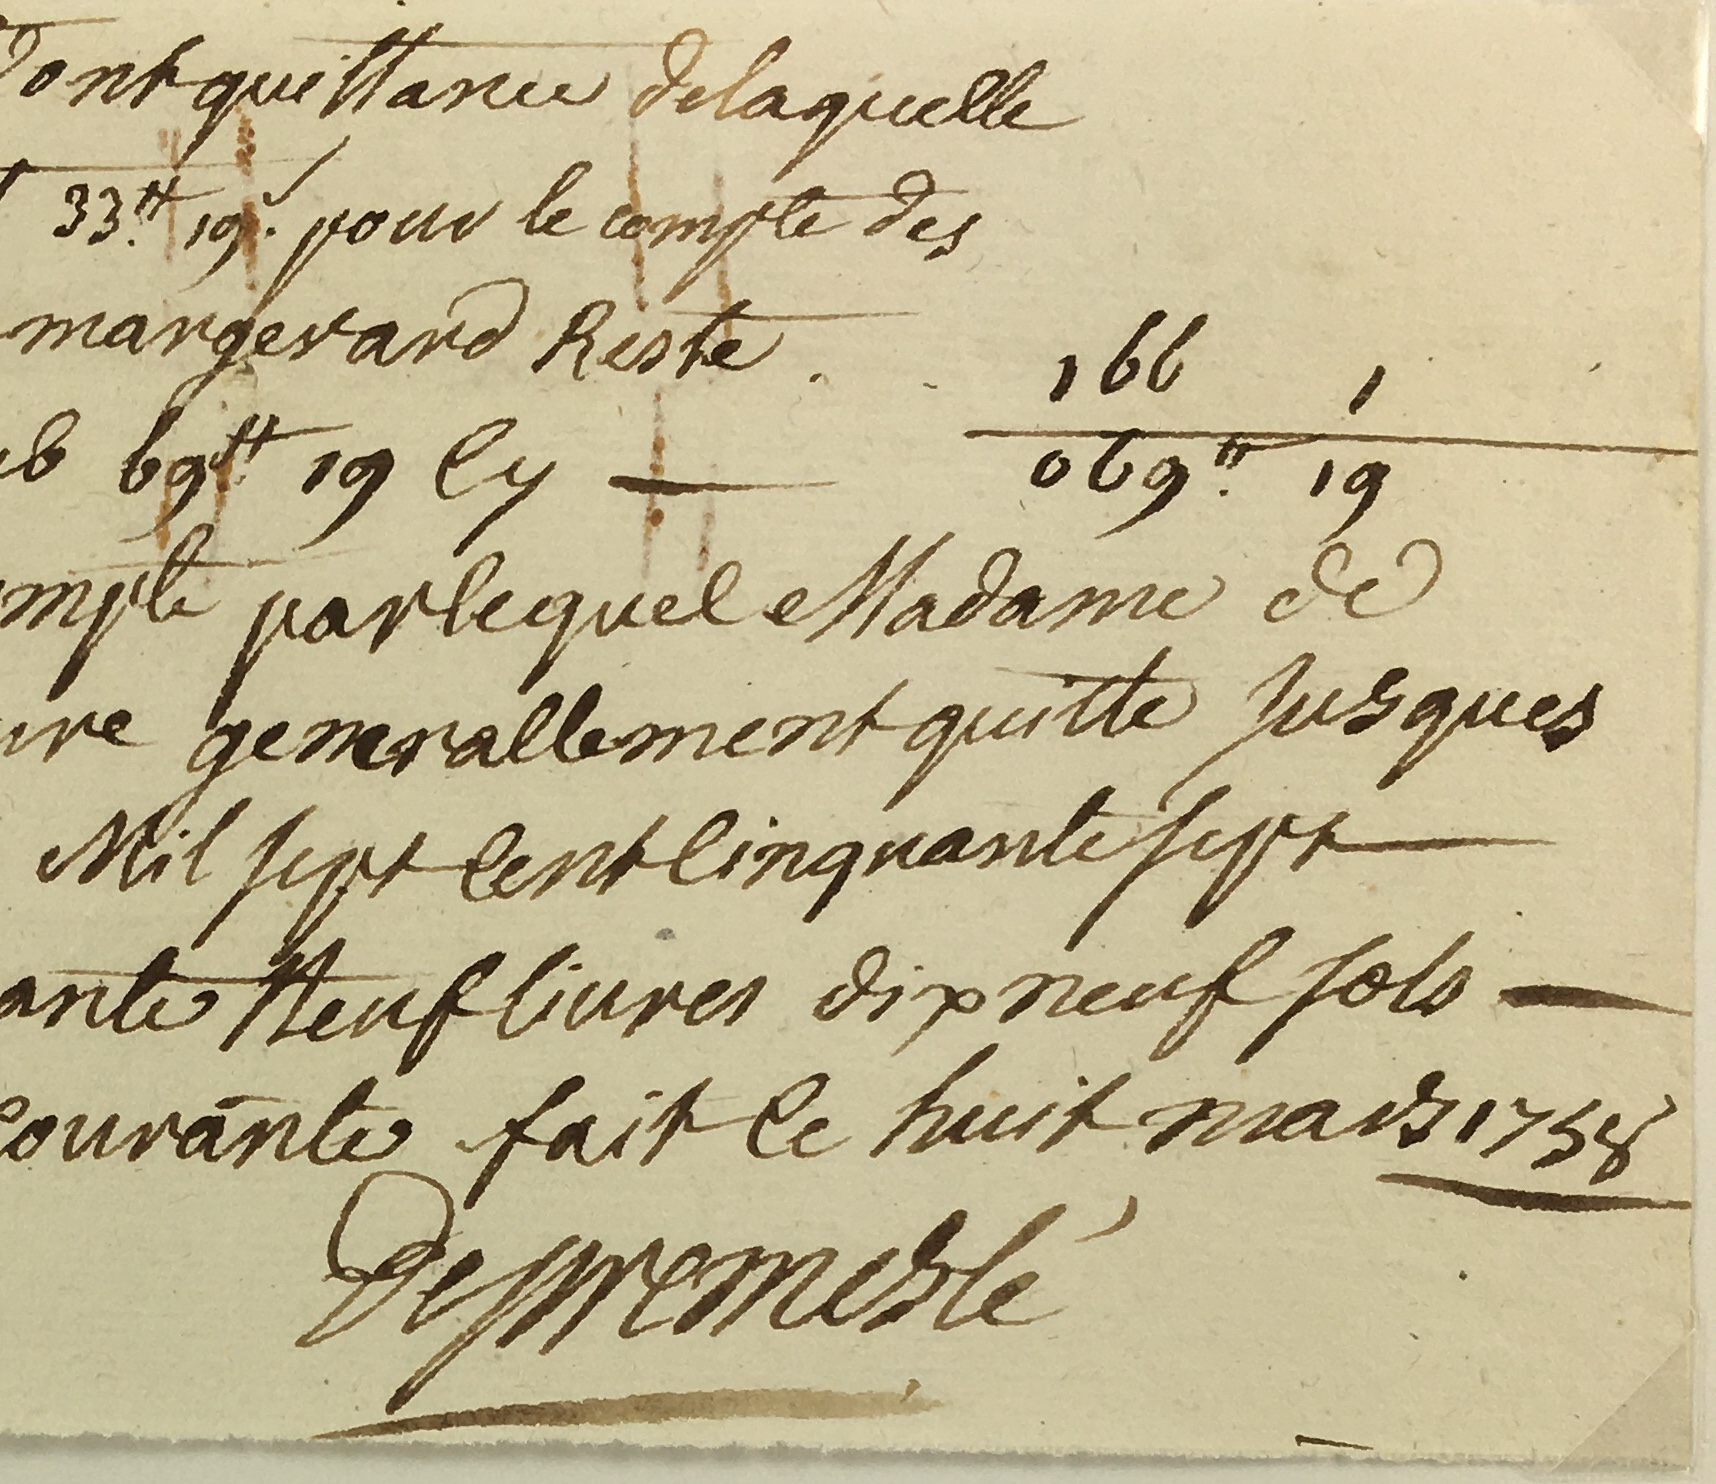 Dont quittance delaquelle
33.tt 19s. pour le compte des
margerard Reste . 166 1
69.tt 19 Cy — 069.tt 19
ompte par lequel Madame de
ure generallement quitte Jusques
Mil sept Cent Cinquante sept —
ante Neuf livres dix neuf sols —
Courante fait le huit mars 1758
Depremeslé